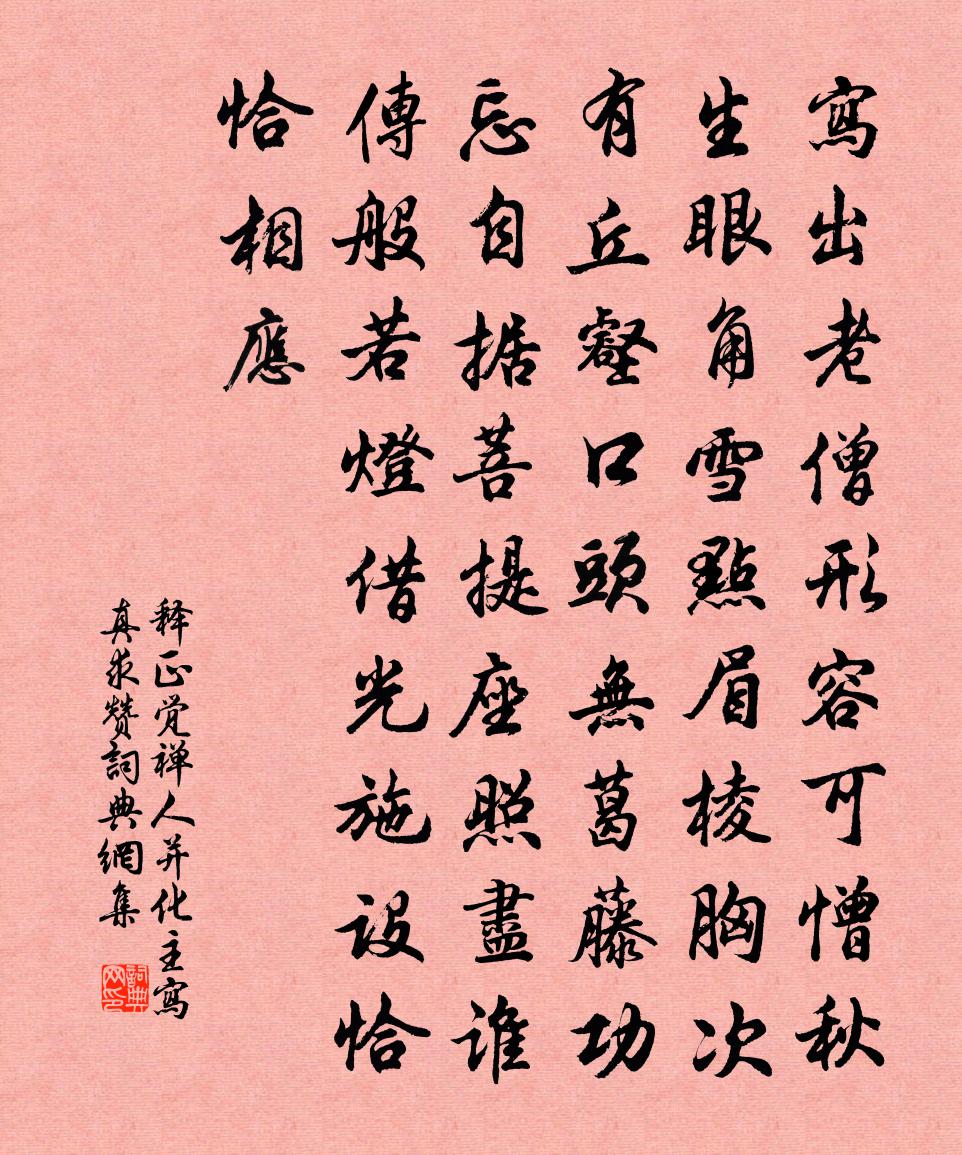 寫出老僧形容可憎秋
生眼角雪點眉棱胸次
有丘壑口頭無葛藤功
忘自據菩提座照盡谁
傳般若燈借光施設恰
恰相應
释正觉禅人并化主寫
真求赞詞典網集
詞典网印